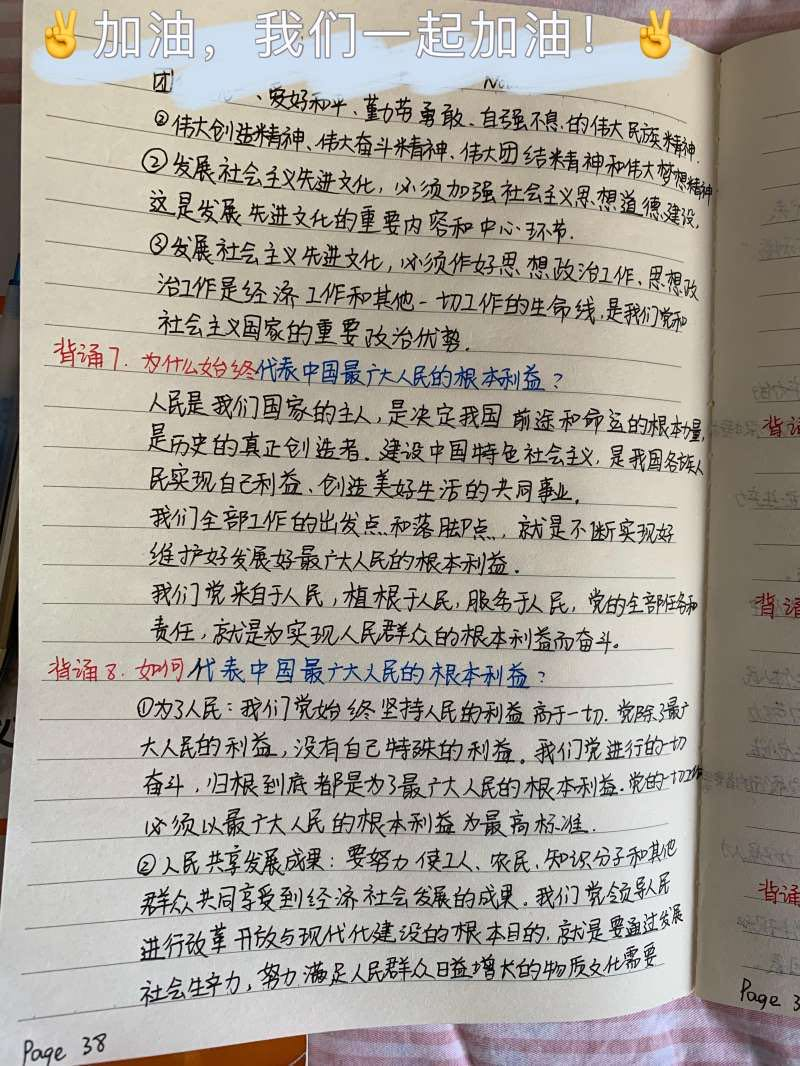 ✌加油，我们一起加油！✌
No
团 、爱好和平、勤劳勇敢、自强不息的伟大民族精神.
②伟大创造精神、伟大奋斗精神、伟大团结精神和伟大梦想精神
②发展社会主义先进文化，必须加强社会主义思想道德建设，
这是发展先进文化的重要内容和中心环节.
③发展社会主义先进文化，必须作好思想政治工作、思想政
治工作是经济工作和其他一切工作的生命线，是我们党和
社会主义国家的重要政治优势.
背诵7.为什么始终代表中国最广大人民的根本利益？
人民是我们国家的主人，是决定我国前途和命运的根本力量，
是历史的真正创造者.建设中国特色社会主义，是我国各族人
民实现自己利益、创造美好生活的共同事业。
我们全部工作的出发点和落脚点，就是不断实现好
维护好发展好最广大人民的根本利益.
我们党来自于人民，植根于人民，服务于人民，党的全部任务和
责任，就是为实现人民群众的根本利益而奋斗。
背诵8.如何代表中国最广大人民的根本利益？
①为了人民：我们党始终坚持人民的利益高于一切.党除了最广
大人民的利益，没有自己特殊的利益。我们党进行的一切
奋斗，归根到底都是为了最广大人民的根本利益.党的一切工作
必须以最广大人民的根本利益为最高标准.
②人民共享发展成果：要努力使工人、农民、知识分子和其他
群众共同享受到经济社会发展的成果。我们党领导人民
进行改革开放与现代化建设的根本目的，就是要通过发展
社会生产力，努力满足人民群众日益增长的物质文化需要
Page 38
背诵
背诵
背诵
Page 3